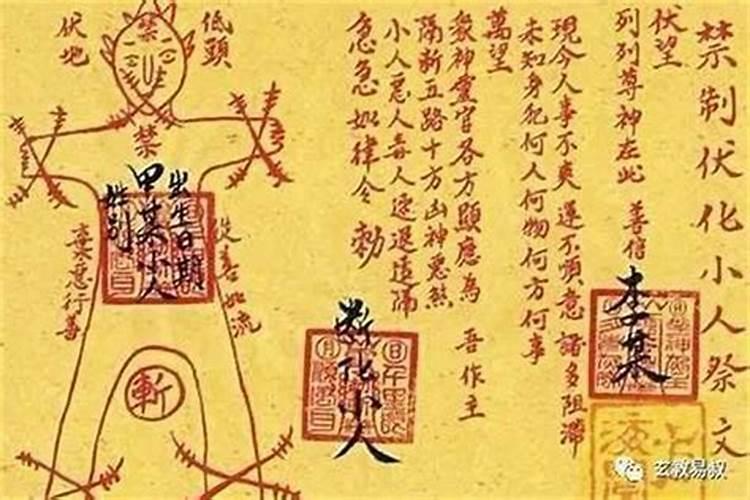 禁制伏化小人祭文
伏望
列列尊神在此 善信
李某
現今人事不爽 運不順意 諸多阻滯
未知身犯何人何物何方何事
萬望
眾神靈官各方顯應為 吾作主
隔斬五路十方凶神惡煞
小人惡人毒人速退遠隔
急急如律令 勅
斷化小人
低頭
伏地
禁
禁
出生日期
甲某小人
性别
從善如流
棄惡行善
斬
玄教易叔